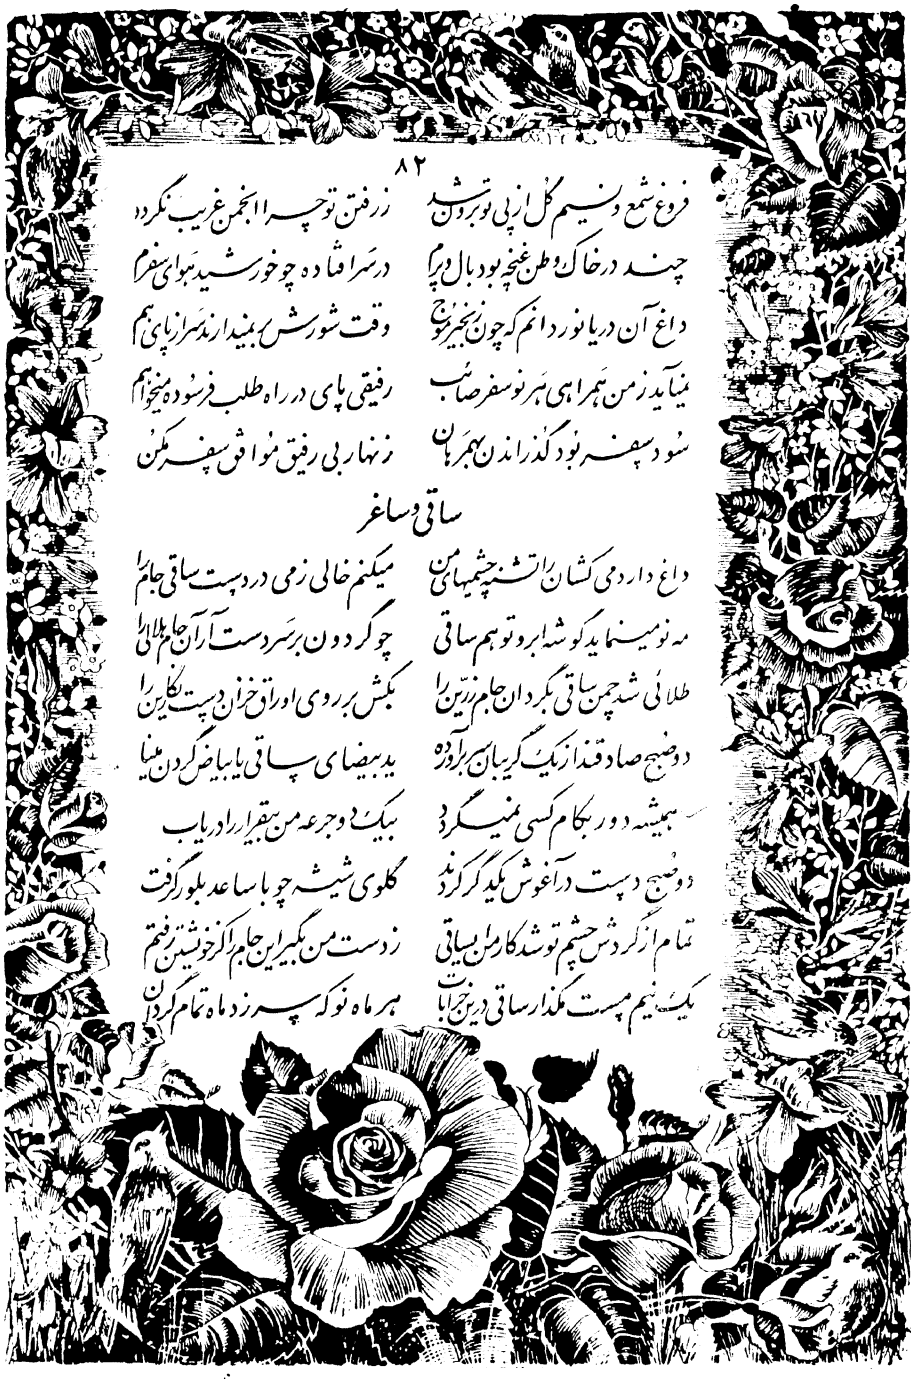 ۸۲
فروغ شمع و نسیم گل از پی تو برون شد ز رفتن تو چرا انجمن غریب نگردد
چند در خاک وطن غنچه بود بال و پرم در سر افتاده چو خورشید هوای سفرم
داغ آن دریا نوردانم که چون زنجیر موج وقت شورش بر نمیدارند سر از پای هم
نمیآید ز من همراهی هر نو سفر صائب رفیقی پای در راه طلب فرسوده میخواهم
سود سفر بود گذراندن بهمرهان زنهار بی رفیق موافق سفر مکن
ساقی و ساغر
داغ دارد می کشان را تشنه چشمیهای من میکنم خالی ز می در دست ساقی جام را
مه نو مینماید گوشه ابرو تو هم ساقی چو گردون بر سر دست آر آن جام هلالی را
طلائی شد چمن ساقی بگردان جام زرّین را بکش بر روی اوراق خزان دست نگارین را
دو صبح صادقند از یک گریبان سر بر آورده ید بیضای ساقی یا بیاض گردن مینا
همیشه دور بکام کسی نمیگردد بیک دو جرعه من بیقرار را دریاب
دو صبح دست در آغوش یکدگر کردند گلوی شیشه چو با ساعد بلور گرفت
تمام از گردش چشم تو شد کار من ای ساقی ز دست من بگیر این جام را کز خویشتن رفتم
یک نیم مست مگذار ساقی درین خرابات هر ماه نو که سر زد ماه تمام گردان